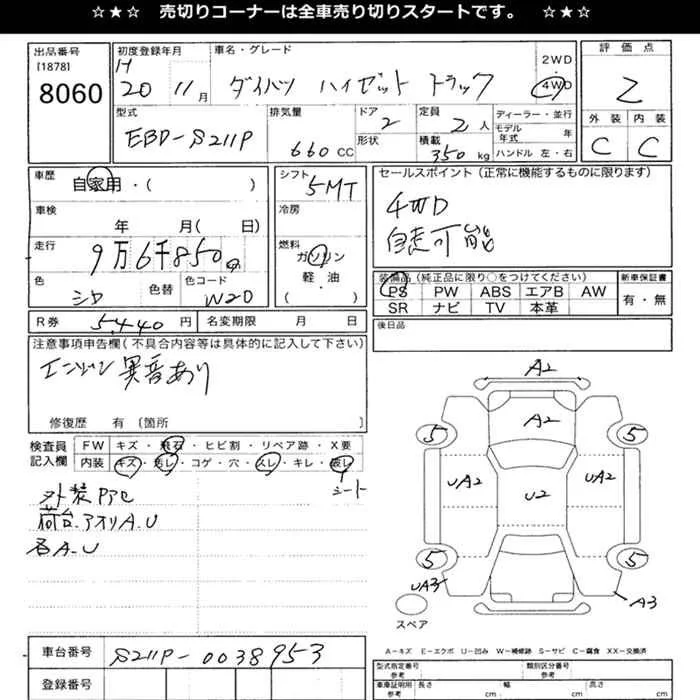 ☆★☆ 売切りコーナーは全車売り切りスタートです。 ☆★☆
出品番号 初度登録年月 車名・グレード 2WD 評価点
[1878] H 20 11月 ダイハツ ハイゼット トラック 4WD
8060
型式 排気量 ドア 定員 ディーラー・並行 外装 内装
EBD-S211P 660CC 2 2人 モデル年式 年 C C
形状 積載 350kg ハンドル 左・右
車歴 自家用・( ) シフト 5MT セールスポイント (正常に機能するものに限ります)
車検 年 月( 日) 冷房 4WD
走行 9万6千850 燃料 ガソリン 自走可能
軽・油
( )
色 シロ 色替 色コード W20
装備品 (純正品に限り○をつけてください) 新車保証書
PS PW ABS エアB AW 有・無
SR ナビ TV 本革
R券 5440円 名変期限 月 日 後日品
注意事項申告欄(不具合内容等は具体的に記入して下さい)
エンジン異音あり
修復歴 有 [箇所 ]
検査員記入欄 FW キズ・飛石・ヒビ割・リペア跡・X要
内装 キズ・汚レ・コゲ・穴・スレ・キレ・破レ
シート
荷台.アオリA.U
各A.U
A2
A2
5 5
UA2 U2 UA2
5 5
UA3 A3
スペア
A-キズ E-エクボ U-凹み W-補修跡 S-サビ C-腐食 XX-交換済
車台番号 S211P-0038953
登録番号
型式指定番号 参考 類別区分番号 参考
車庫証明用 参考 長さ cm 幅 cm 高さ cm